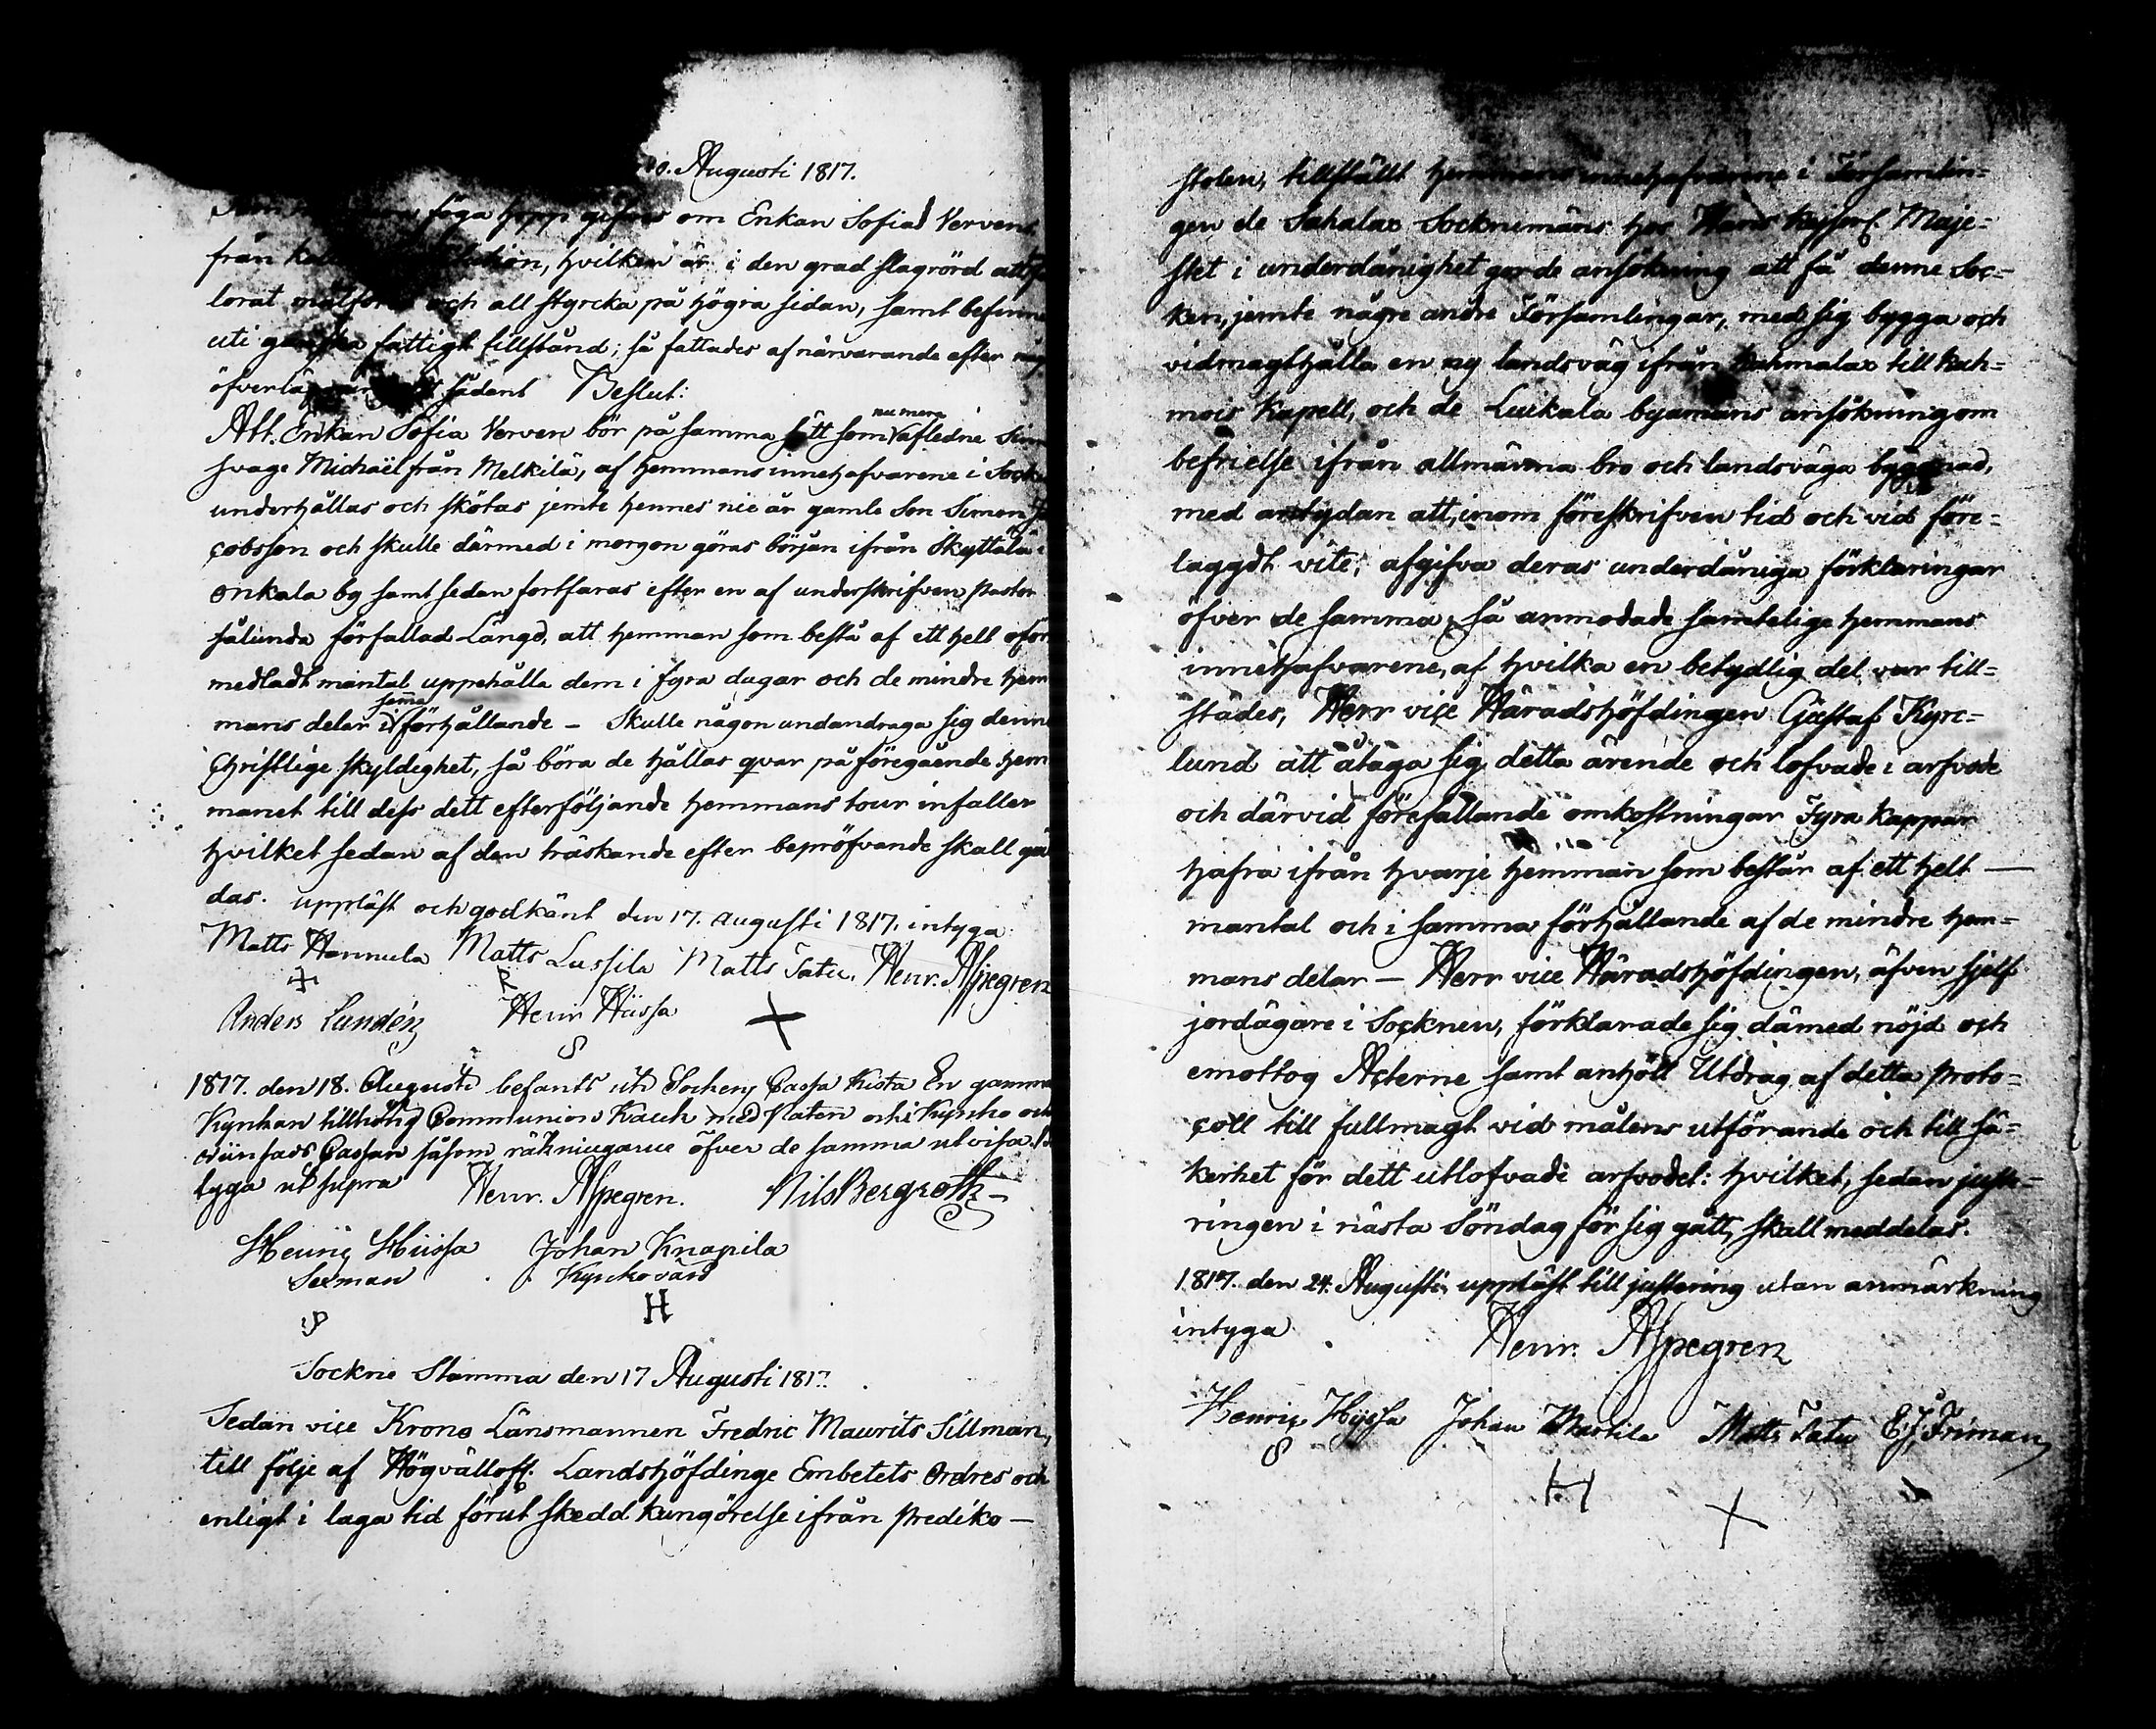 10. Augusti 1817.
föga hopp gifves om Enkan Sofia Verven
från hvilken är i den grad slagrörd att
lorat målföre och all styrcka på högra sidan, samt befinne
uti ganska fattigt tillstånd; så fattades af närvarande efter
öfverläg sådant Beslut:
Att Enkan Sofia Verven bör på samma sätt som nu mera afledne
svage Michaël från Melkilä, af hemmans innehafvarene i Sock
underhållas och skötas jemte hennes nie år gamle Son Simon
cobsson och skulle därmed i morgon göras början ifrån Skyttälä i
onkala by samt sedan fortfaras efter en af underskrifven Pastor
sålunda författad Längd, att hemman som bestå af ett helt oför
medladt mantal uppehålla dem i fyra dagar och de mindre hem
mans delar i samma förhållande – Skulle någon undandraga sig denne
Christlige skyldighet, så böra de hållas qvar på föregående hem
manet till dess dett efterföljande hemmans tour infaller
hvilket sedan af den träskande efter bepröfvande skall gä
das. uppläst och godkänt den 17. augusti 1817. intyga:
Matts Hannula Matts Lussila Matts Tatu. Henr. Aspegren
Anders Lundén Henr Hiissa
1817. den 18. Augusti befants uti Sockens Cassa Kista En gammal
Kyrkan tillhörig Communion Kalk med Paten och i Kyrko och
Cassan såsom räkningarne öfver de samma utvisa.
tyga ut supra Henr. Aspegren. Nils Bergroth
Henric Hiissa Johan Knapila
Sexman Kyrckovärd
H
Sockne Stamma den 17 Augusti 1817.
Sedan vice Krono Länsmannen Fredric Maurits Sillman,
till följe af Högvällofl. Landshöfdinge Embetets Ordres och
enligt i laga tid förut skedd kungörelse ifrån Prediko–
stolen, tillställt hemmans innehafvarene i Församlin=
gen de Sahalax Socknemäns hos Hans Kejserl. Maje=
stet i underdånighet gorde ansökning att få denne Soc=
ken, jemte någre andre Församlingar, med sig bygga och
vidmagthålla en ny landsväg ifrån Kuhmalax till Kuh=
mois Kapell, och de Luikala byamäns ansökning om
befrielse ifrån allmänna bro och landsväga byggnad,
med antydan att, inom föreskrifven tid och vid före=
laggdt vite, afgifva deras underdåniga förklaringar
öfver de samma; så anmodade samtelige hemmans
innehafvarene, af hvilka en betydlig del var till=
städes, Herr vice Häradshöfdingen Gustaf Kyrc=
lund att åtaga sig detta ärende och lofvade i arfvode
och därvid förefallande omkostningar Fyra kappar
hafra ifrån hvarje hemman som består af ett helt –
mantal och i samma förhållande af de mindre hem=
mans delar – Herr vice Häradshöfdingen, äfven sjelf
jordägare i Socknen, förklarade sig dämed nöjd och
emottog Acterne samt anhöll Utdrag af detta Proto=
coll till fullmagt vid målens utförande och till sä=
kerhet för dett utlofvade arfvodet: hvilket, sedan juste=
ringen i nästa Söndag för sig gått, skall meddelas.
1817. den 24. Augusti uppläst till justering utan anmärkning
intyga Henr. Aspegren
Henric Hyssa Johan Martila Matts Tatu E J Friman
H